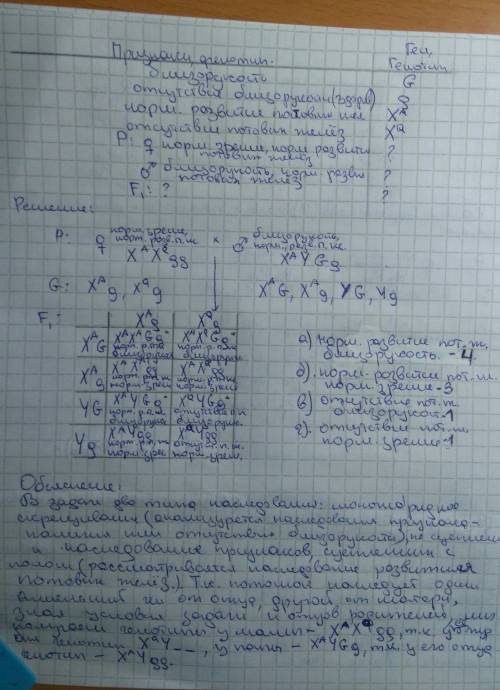 Признаки, фенотип. Ген, генотип
близорукость G
отсутствие близорукости (здоров) g
норм. развитие потовых жел X^A
отсутствие потовых желёз X^a
P: ♀ норм. зрение, норм. развити ?
потовых желёз
♂ близорукость, норм. разви ?
потовых желёз
F₁: ? ?
Решение:
P: ♀ норм. зрение, × ♂ близорукость,
норм. разв. п. ж. норм. разв. п. ж.
X^A X^a gg X^A Y Gg
G: X^A g, X^a g X^A G, X^A g, YG, Yg
F₁: X^A g X^a g
X^A G X^A X^A Gg X^A X^a Gg
норм. р. п. ж. норм. р. п. ж.
близорукость близорукость
X^A g X^A X^A gg X^A X^a gg
норм. р. п. ж. норм. р. п. ж.
норм. зрен норм. зрен
YG X^A Y Gg X^a Y Gg
норм. р. п. ж. отсутствие п. ж.
близорукость близорук.
Yg X^A Y gg X^a Y gg
норм. р. п. ж. отсут. п. ж.
норм. зрен норм. зрен.
а) норм. развитие пот. ж.
близорукость - 4
б) норм. развитие пот. ж.
норм. зрение - 3
в) отсутствие пот. ж.
близорукост - 1
г) отсутствие пот. ж.
норм. зрение - 1
Объяснение:
В задаче два типа наследования: моногибридное
скрещивание (анализируется наследование признака
наличия или отсутствия близорукости), не сцепленн
и наследование признаков, сцепленных с
полом (рассматривается наследование развития
потовых желёз.) Т.е. потомок наследует один
аллельный ген от отца, другой от матери,
зная условия задачи и отцов родителей, мы
получаем генотипы у мамы - X^A X^a gg, т.к. у отца
был генотип X^a Y _ _, у папы - X^A Y Gg, т.к. у его отца
генотип - X^A Y gg.